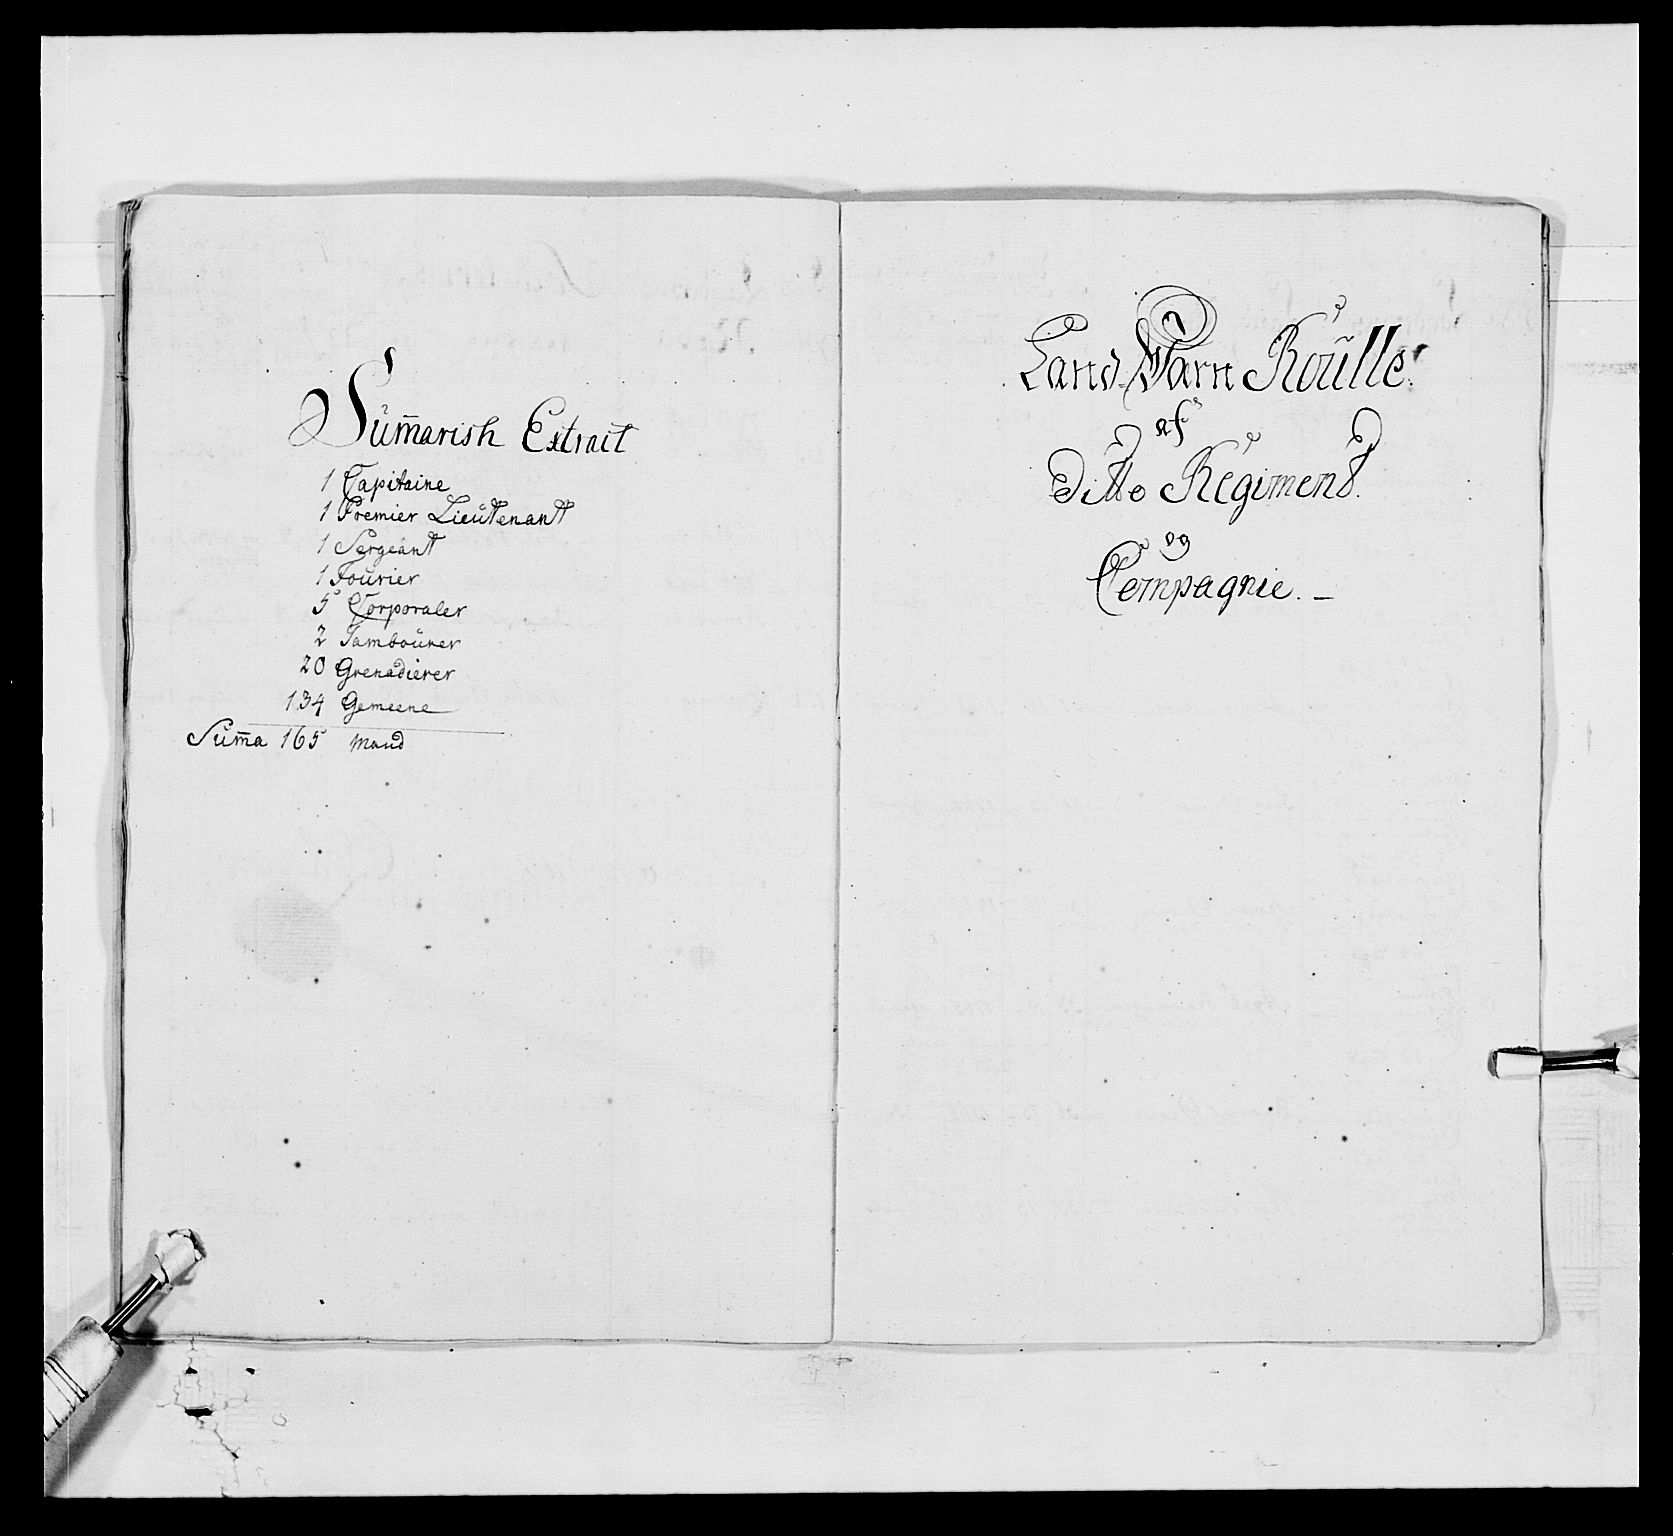 Sum̄arish Extrait
1 Capitaine
1 Premier Lieutenantt
1 Sergeantt
1 Fourier
5 Corporaler
2 Tambourer
20 Grenadierer
134 Gemeene
Sum̄a 165 Mand
Land-Wärn Roulle.
af
Ditto Regiment.
og
Compagnie. –